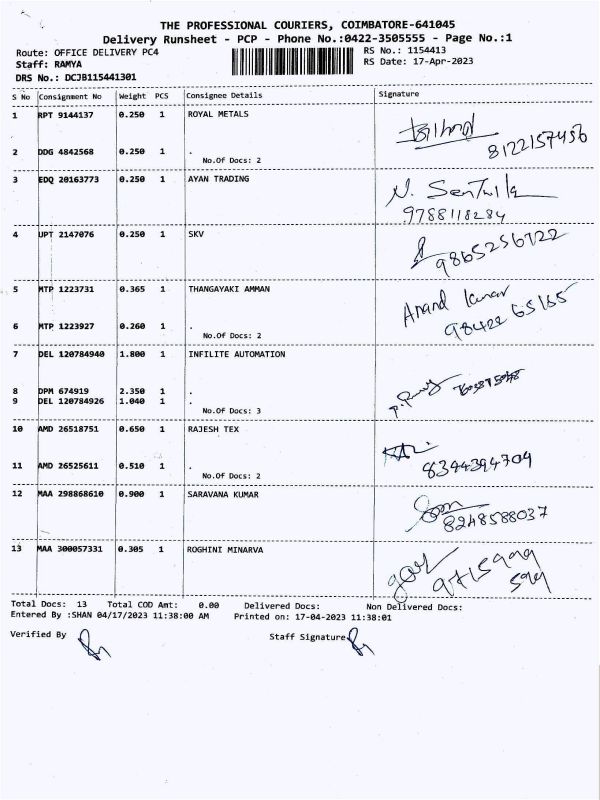 THE PROFESSIONAL COURIERS, COIMBATORE-641045
Delivery Runsheet - PCP - Phone No.:0422-3505555 - Page No.:1
Route: OFFICE DELIVERY PC4 RS No.: 1154413
Staff: RAMYA RS Date: 17-Apr-2023
DRS No.: DCJB115441301
S No Consignment No Weight PCS Consignee Details Signature
1 RPT 9144137 0.250 1 ROYAL METALS
8122157456
2 DDG 4842568 0.250 1 .
No.Of Docs: 2
3 EDQ 20163773 0.250 1 AYAN TRADING
9788118284
4 UPT 2147076 0.250 1 SKV
9865256722
5 MTP 1223731 0.365 1 THANGAYAKI AMMAN
Anand Kumar
98422 65165
6 MTP 1223927 0.260 1 .
No.Of Docs: 2
7 DEL 120784940 1.800 1 INFILITE AUTOMATION
8 DPM 674919 2.350 1 .
9 DEL 120784926 1.040 1 .
No.Of Docs: 3
10 AMD 26518751 0.650 1 RAJESH TEX
8344394709
11 AMD 26525611 0.510 1 .
No.Of Docs: 2
12 MAA 298868610 0.900 1 SARAVANA KUMAR
8248588037
13 MAA 300057331 0.305 1 ROGHINI MINARVA
Total Docs: 13 Total COD Amt: 0.00 Delivered Docs: Non Delivered Docs:
Entered By :SHAN 04/17/2023 11:38:00 AM Printed on: 17-04-2023 11:38:01
Verified By Staff Signature